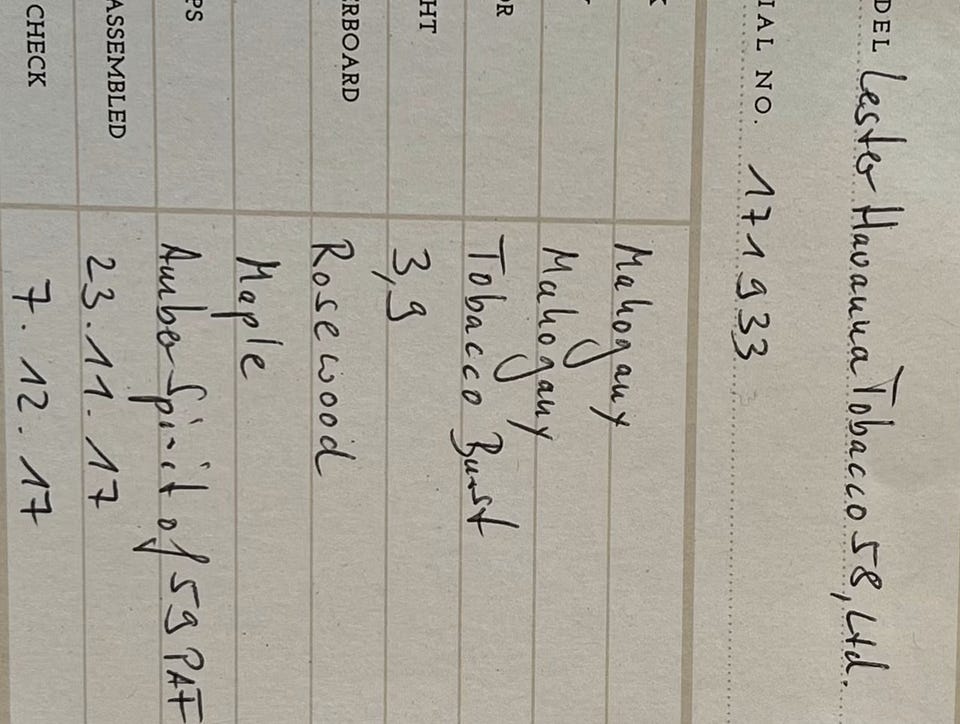 DEL Lester Havanna Tobacco 58, Ltd.
IAL NO. 171933
K Mahogany
Mahogany
OR Tobacco Burst
HT 3,9
ERBOARD Rosewood
Maple
PS Amber Spirit of 59 PAF
ASSEMBLED 23.11.17
CHECK 7.12.17